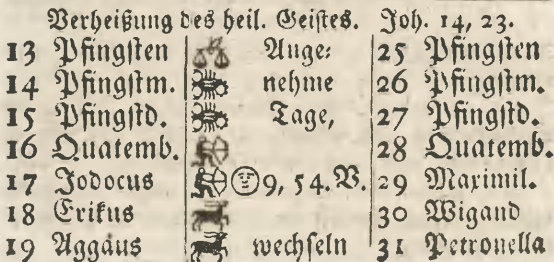 Verheißung des heil. Geistes. Joh. 14, 23.
13 Pfingsten Ange⸗ 25 Pfingsten
14 Pfingstm. nehme 26 Pfingstm.
15 Pfingstd. Tage, 27 Pfingstd.
16 Quatemb. 28 Quatemb.
17 Jodocus 9, 54. V. 29 Maximil.
18 Erikus 30 Wigand
19 Aggäus wechseln 31 Petronella